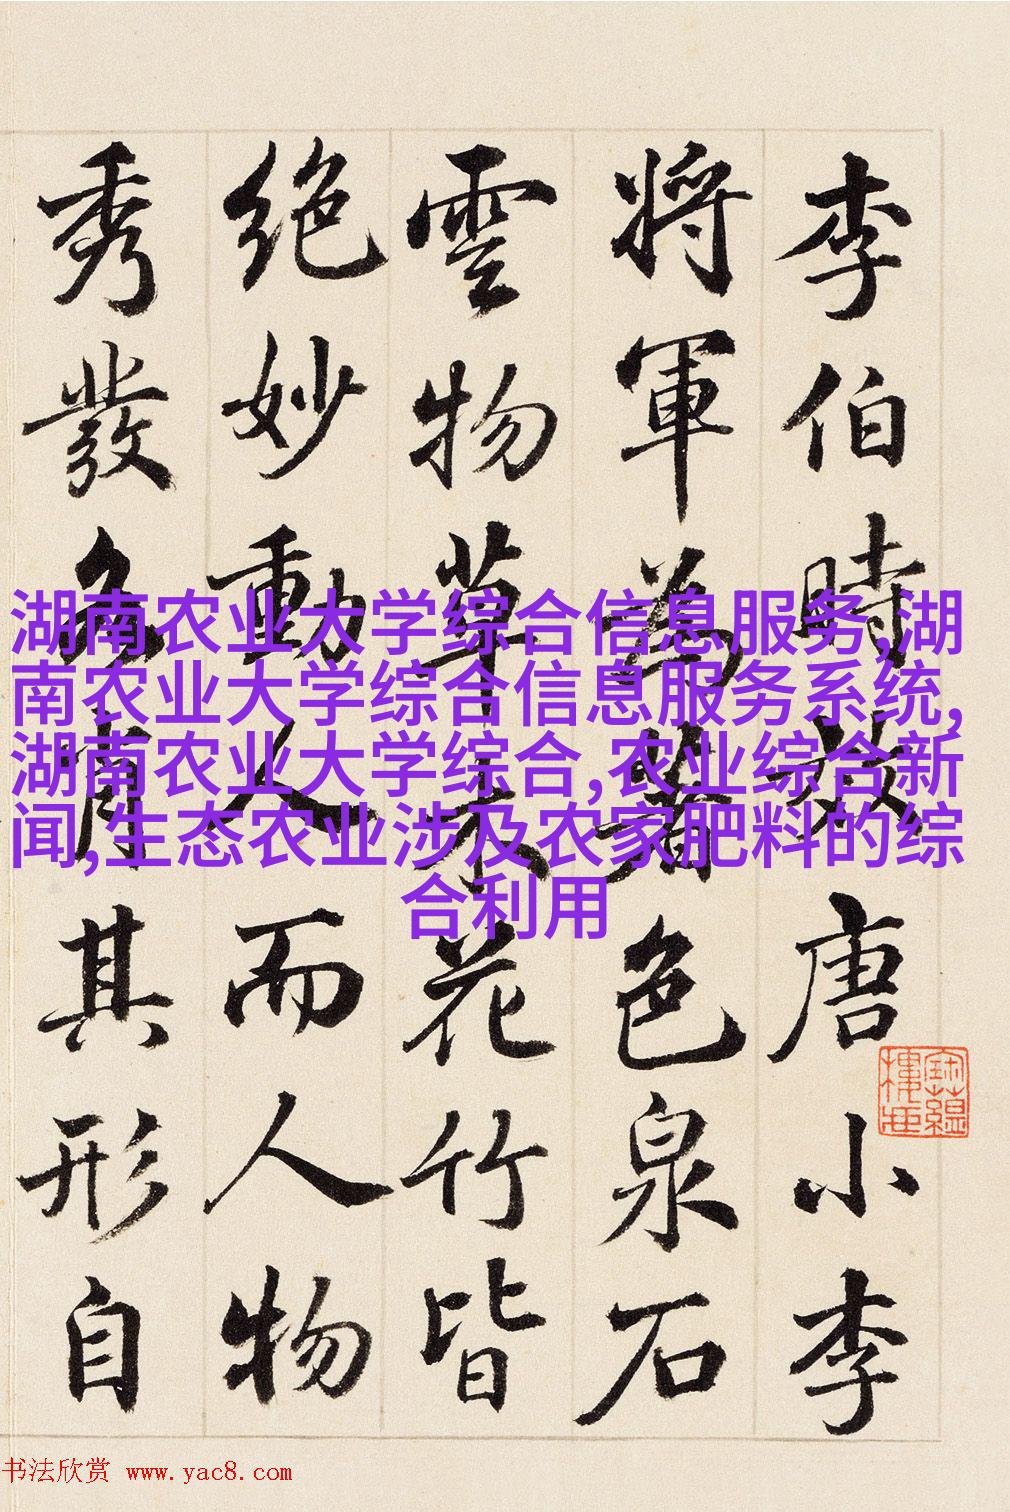 李伯時效唐小李
將軍為著色泉石
雲物草木花竹皆
絕妙動人而人物
秀發各肖其形自
湖南农业大学综合信息服务,湖
南农业大学综合信息服务系统,
湖南农业大学综合,农业综合新
闻,生态农业涉及农家肥料的综
合利用
书法欣赏 www.yac8.com